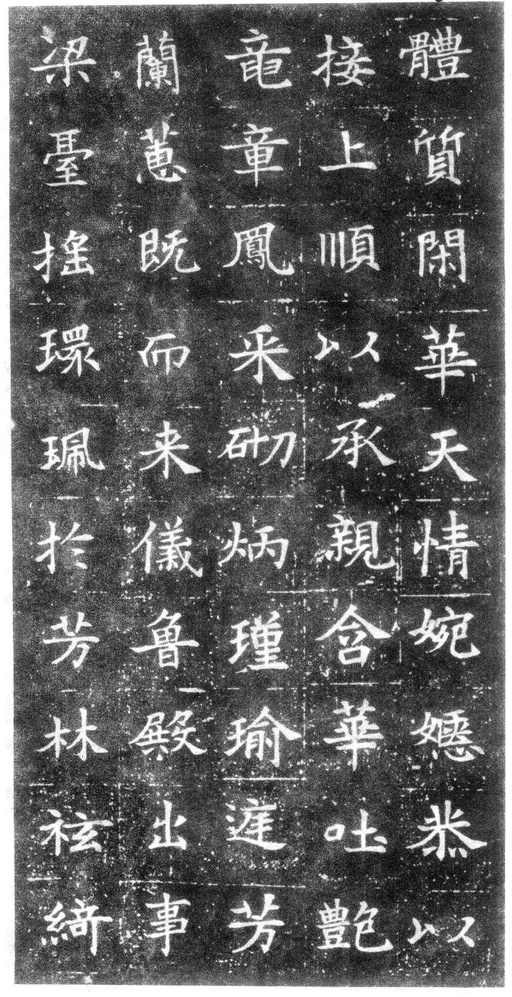 體質閑華天情婉嫕恭以
接上順以承親含華吐艷
竜章鳳采砌炳瑾瑜庭芳
蘭蕙既而来儀魯殿出事
梁臺摇環珮於芳林袨綺